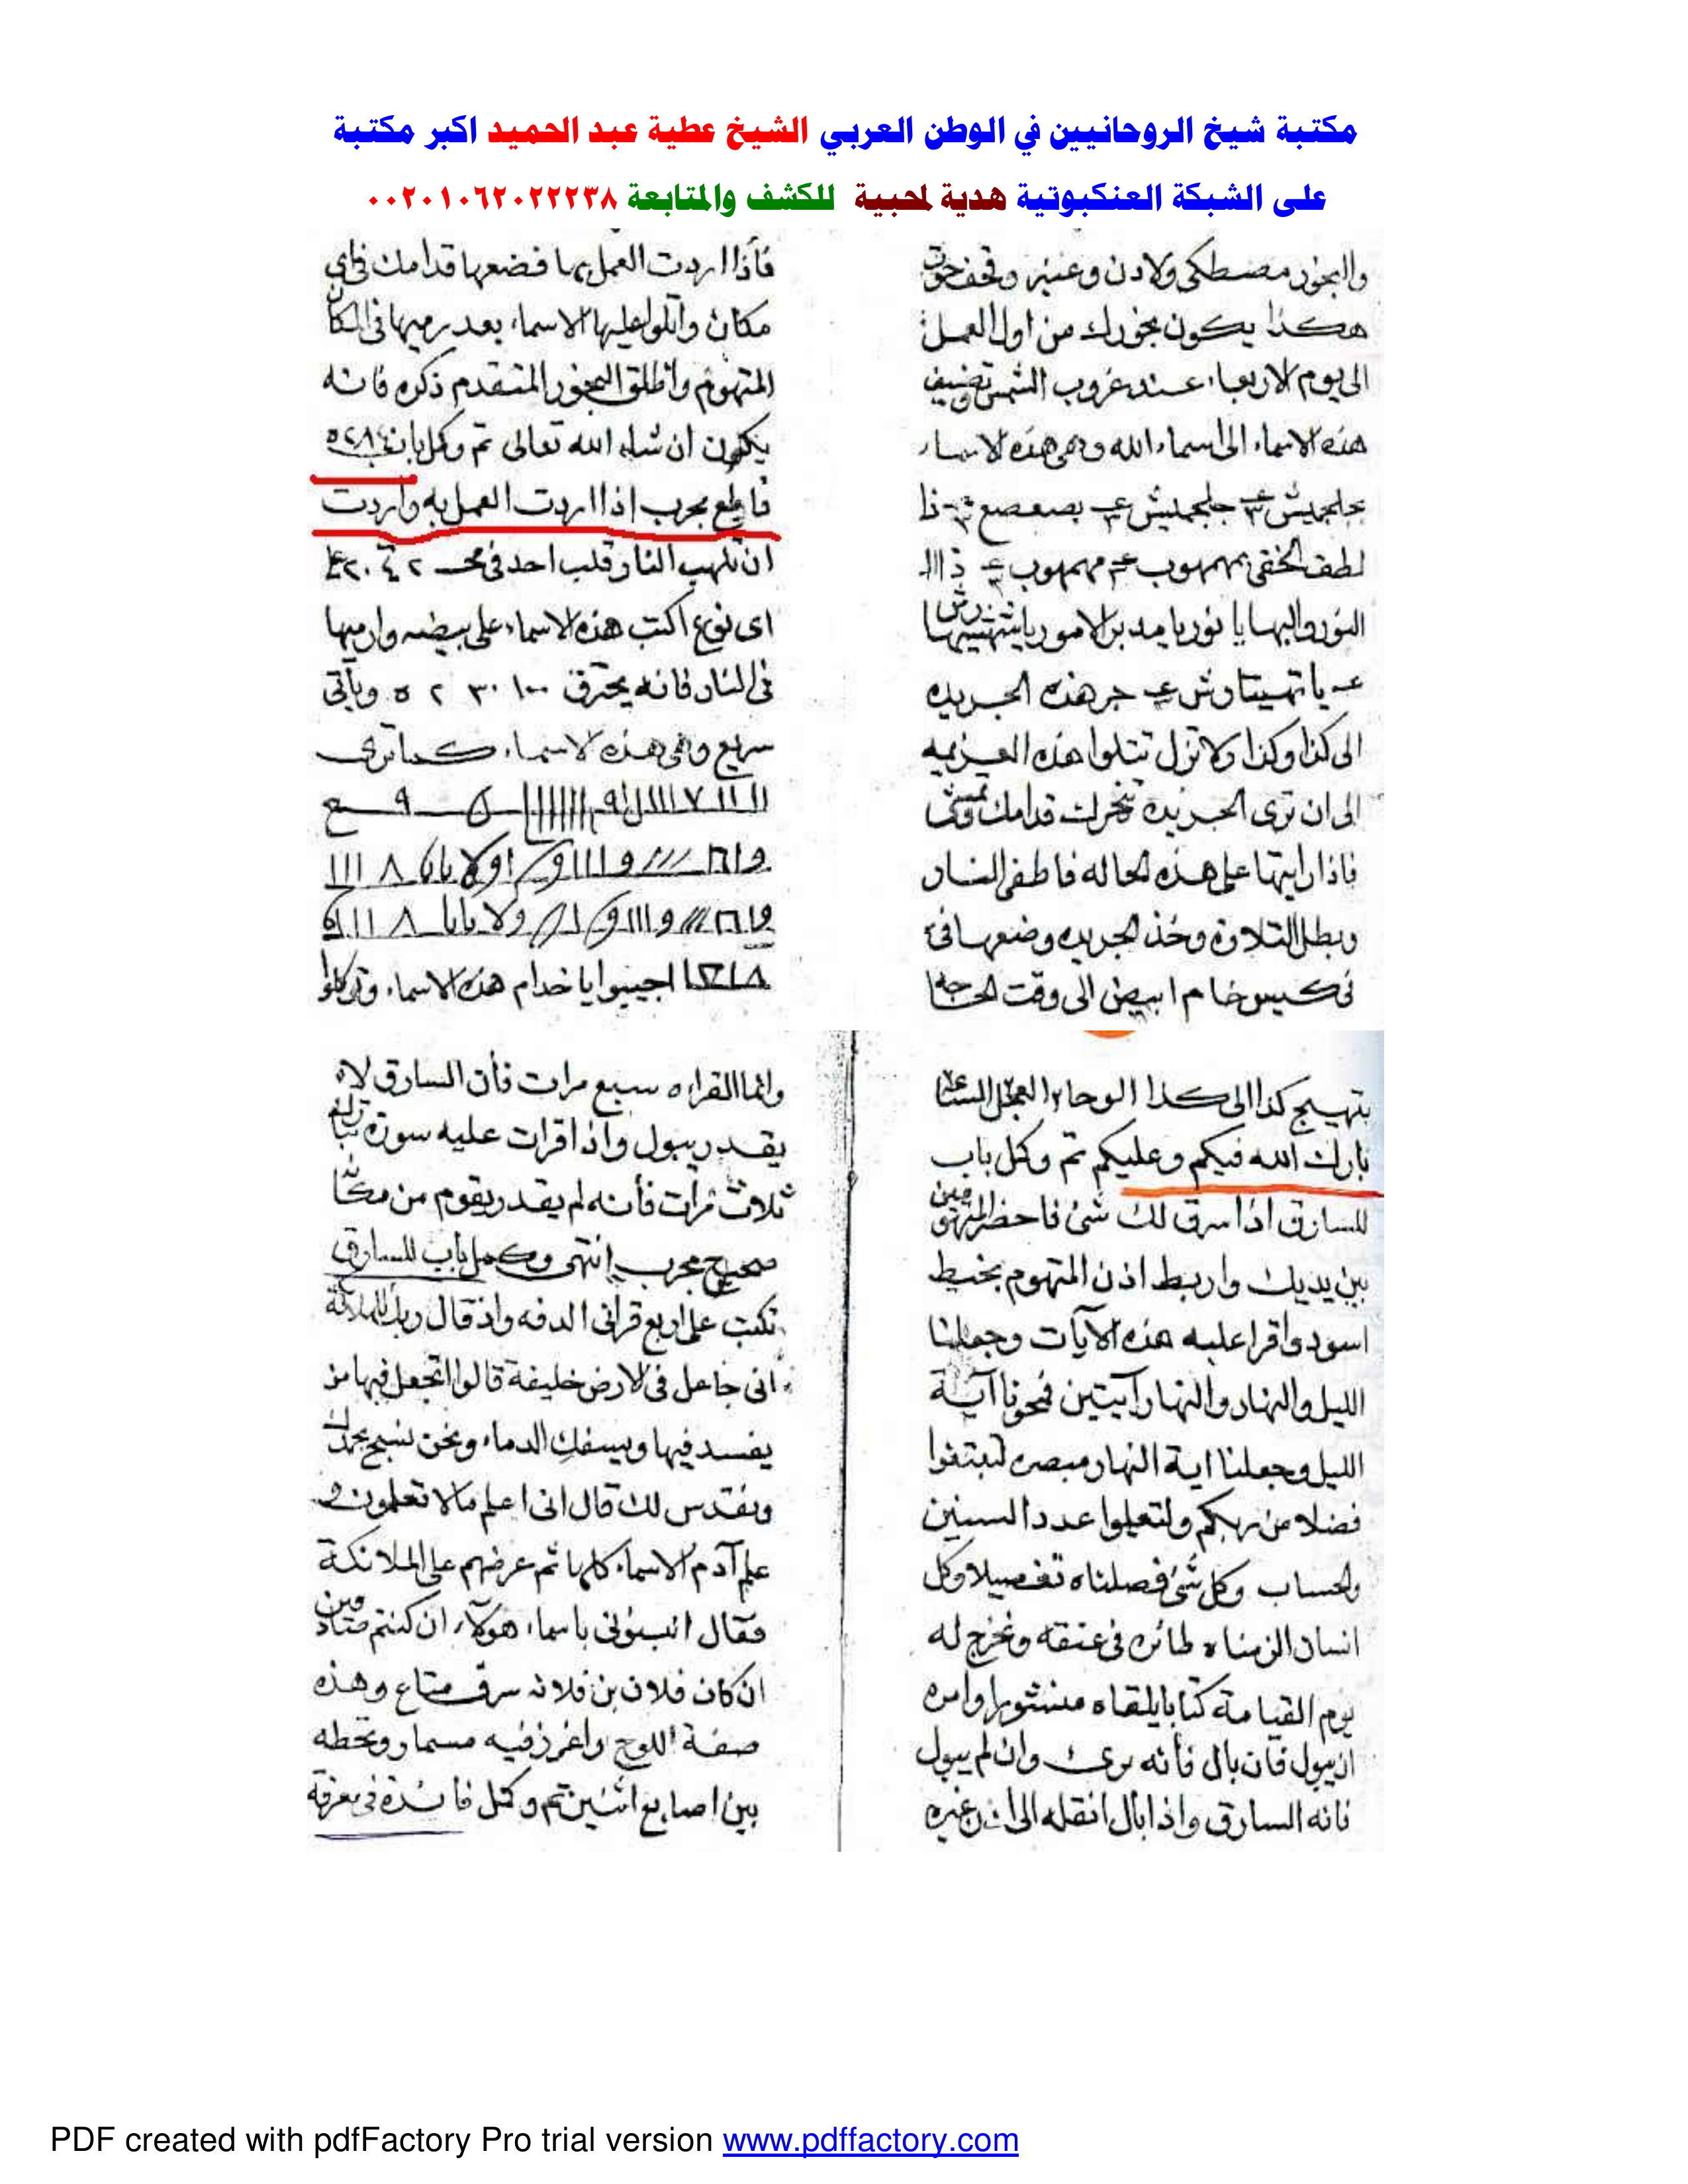 مكتبة شيخ الروحانيين في الوطن العربي الشيخ عطية عبد الحميد اكبر مكتبة
على الشبكة العنكبوتية هدية لمحبية للكشف والمتابعة ٠٠٢٠١٠٦٢٠٢٢٢٣٨
والبخور مصطكى ولادن وعنبر وقحف
هكذا يكون بخورك من اول العمل
الى يوم الاربعاء عند غروب الشمس وتضيف
هذه الاسماء الى اسماء الله وهى هذه الاسماء
بجلجميش جلجمليش بصعصع ذا
لطف الخفى بمهوب مهمهوب ذا ال
النور والبها يا نور يا مدبر الامور
يا تهيتاوش جر هذه الجريده
الى كذا وكذا ولا تزل تتلوا هذه العزيمه
الى ان ترى الجريدة تتحرك قدامك وتمشى
فاذا رايتها على هذه الحاله فاطفى النار
وبطل التلاوة وخذ الجريده وضعها فى
فى كيس خام ابيض الى وقت الحاجة
فأذا اردت العمل بها فضعها قدامك فى اى
مكان واتلوا عليها الاسماء بعد رميها فى المكان
المتهوم واطلق البخور المتقدم ذكره فانه
يكون ان شاء الله تعالى تم وكمل باب
قاطع مجرب اذا اردت العمل به واردت
ان تلهب النار قلب احد فى
اى نوع اكتب هذه الاسماء على بيضه وارميها
فى النار فانه يحترق ١٠٠ ٣٠ ٢ ٥ ويأتى
سريع وهى هذه الاسماء كما ترى
اجيبوا يا خدام هذه الاسماء وتوكلوا
بتهييج كذا الى كذا الوحا ٢ العجل الساعة
بارك الله فيكم وعليكم تم وكمل باب
للسارق اذا سرق لك شئ فاحضر المتهومين
بين يديك واربط اذن المتهوم بخيط
اسود واقرا عليه هذه الآيات وجعلنا
الليل والنهار والنهار آيتين فمحونا آية
الليل وجعلنا اية النهار مبصره لتبتغوا
فضلا من ربكم ولتعلموا عدد السنين
والحساب وكل شئ فصلناه تفصيلا وكل
انسان الزمناه طائره فى عنقه ونخرج له
يوم القيامة كتابا يلقاه منشورا وامره
ان يبول فان بال فأنه برى وان لم يبول
فانه السارق واذا بال انقله الى اذن غيره
وانما القراءه سبع مرات فأن السارق لا
يقدر يبول واذا قرات عليه سورة
ثلاث مرات فأنه لم يقدر يقوم من مكانه
صحيح مجرب انتهى وكمل باب للسارق
تكتب على اربع قرانى الدفه واذ قال ربك للملائكة
انى جاعل فى الارض خليفة قالوا اتجعل فيها من
يفسد فيها ويسفك الدماء ونحن نسبح بحمدك
ونقدس لك قال انى اعلم ما لا تعلمون و
علم آدم الاسماء كلها ثم عرضهم على الملائكة
فقال انبئونى باسماء هولآء ان كنتم صادقين
ان كان فلان بن فلانه سرق متاع وهذه
صفة اللوح واغرز فيه مسمار وتحطه
بين اصابع اثنين تم وكمل فائدة فى معرفة
PDF created with pdfFactory Pro trial version www.pdffactory.com